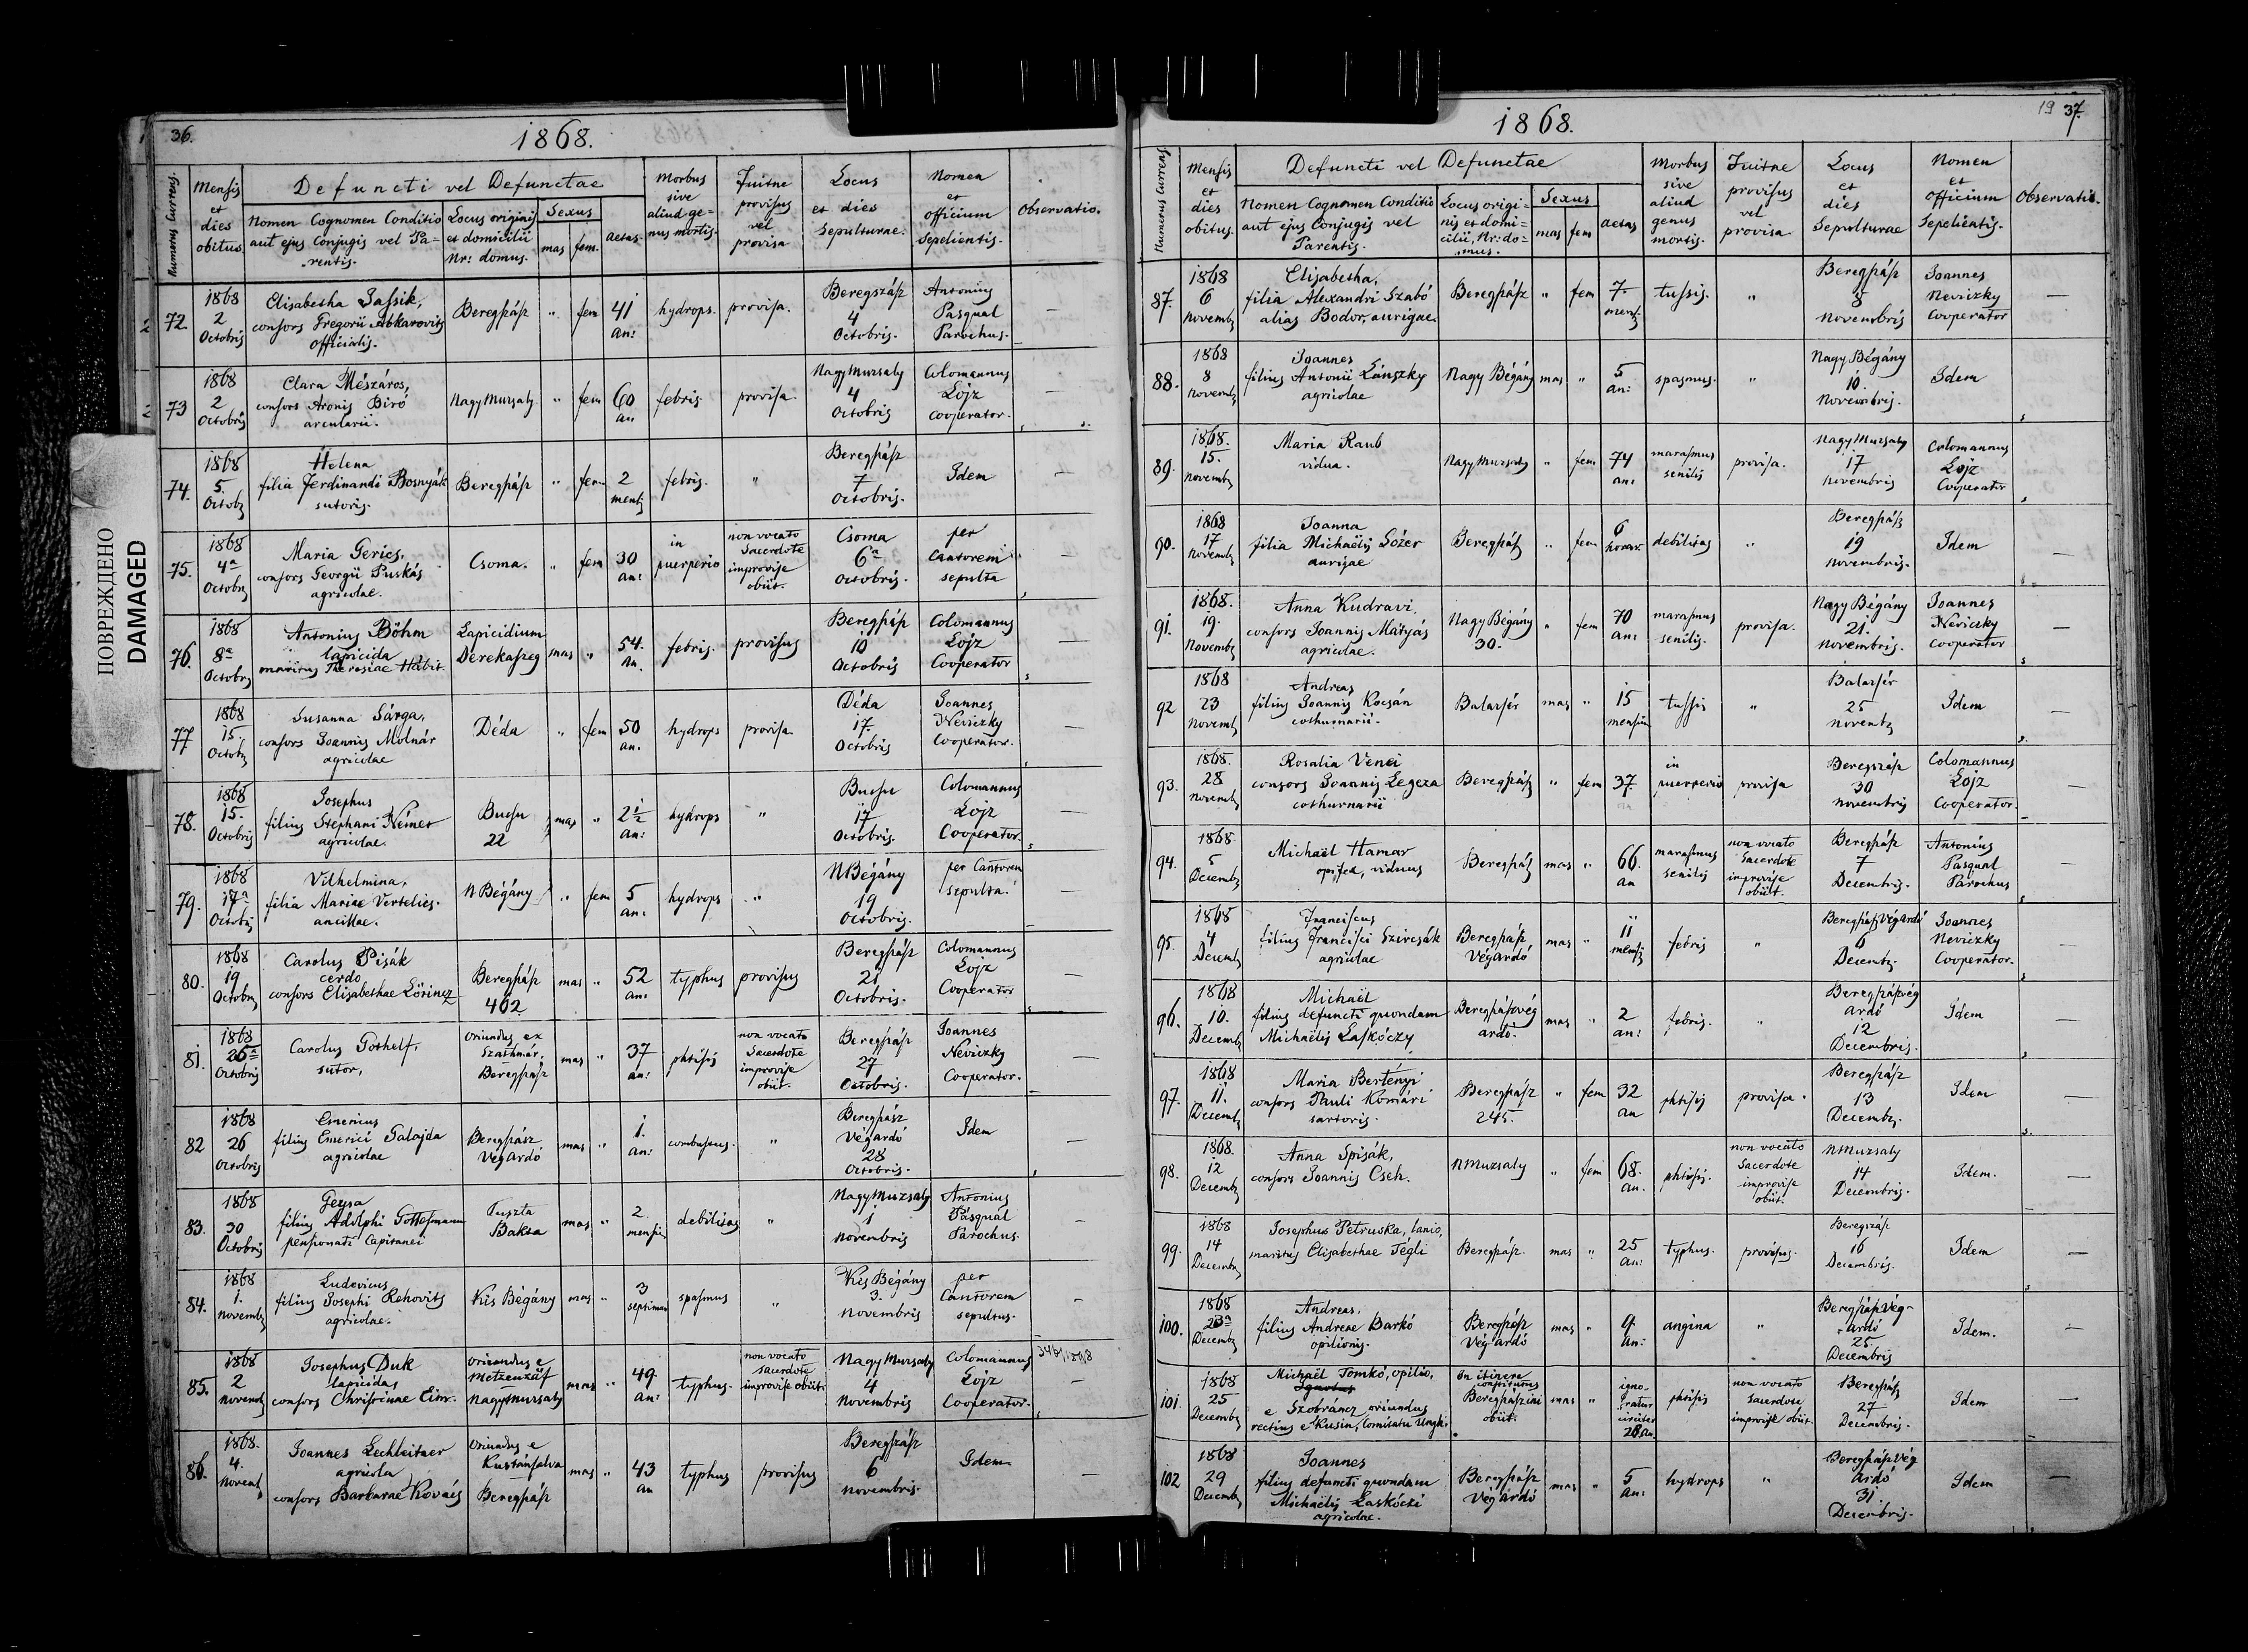 36.
1868.
Numerus Currens.
Mensis
et
dies
obitus.
Defuncti vel Defunctae
Nomen Cognomen Conditio
aut ejus Conjugis vel Pa=
rentis.
Locus originis
et domicilii
Nr: domus.
Sexus
mas
fem.
aetas
Morbus
sive
aliud ge=
nus mortis.
Fuitne
provisus
vel
provisa
Locus
et dies
Sepulturae.
Nomen
et
officium
Sepelientis.
Observatio.
72.
1868
2
Octobris
Elisabetha
consors Gregorii Abkarovits
officialis.
Beregszász
"
fem
41
an:
hydrops.
provisa.
Beregszász
4
Octobris.
Antonius
Pasqual
Parochus.
—
73
1868
2
Octobris
Clara Mészáros,
consors Aronis Biró
arcularii.
Nagy Muzsaly
"
fem
60
an
febris.
provisa.
Nagy Muzsaly
4
Octobris
Colomannus
Lojz
Cooperator.
—
74.
1868
5.
Octob
Helena
filia Ferdinandi Bosnyák
sutoris.
Beregszász
"
fem
2
mens
febris.
"
Beregszász
7
Octobris.
Idem
—
75.
1868
4a
Octob
Maria Gerics,
consors Georgii Puskás
agricolae.
Csoma.
"
fem
30
an:
in
puerperio
non vocato
Sacerdote
improvise
obiit.
Csoma
6a
Octobris.
per
Cantorem
sepulta
—
76.
1868
8a
Octob
Antonius Böhm
lapicida
maritus Theresiae Habit.
Lapicidium
Derekaszeg
mas
"
54.
an.
febris.
provisus
Beregszász
10
Octobris
Colomannus
Lojz
Cooperator
—
77
1868
15.
Octob
Susanna Sárga,
consors Joannis Molnár
agricolae
Déda
"
fem
50
an.
hydrops
provisa.
Déda
17.
Octobris
Joannes
Neviczky
Cooperator.
—
78.
1868
15.
Octobris
Josephus
filius Stephani Német
agricolae.
Bucsu
22
mas
"
2½
an:
hydrops
"
Bucsu
17
Octobris.
Colomannus
Lojz
Cooperator.
—
79.
1868
17a
Octob
Vilhelmina,
filia Mariae Vertelics
ancillae.
N Bégány
"
fem
5
an:
hydrops
"
N Bégány
19
Octobris.
per Cantorem
sepulta.
—
80.
1868
19
Octob
Carolus Pisák
cerdo
consors Elisabethae Lőrincz
Beregszász
462
mas
"
52
an:
typhus
provisus
Beregszász
21
Octobris.
Colomannus
Lojz
Cooperator
—
81.
1868
25a
Octobris
Carolus Gothelf,
sutor,
oriundus ex
Szathmár,
Beregszász
mas
"
37
an:
phtisis
non vocato
Sacerdote
improvise
obiit.
Beregszász
27
Octobris.
Joannes
Neviczky
Cooperator.
—
82
1868
26
Octobris
Emericus
filius Emerici Galajda
agricolae
Beregszász
Végardó
mas
"
1.
an:
combustus.
"
Beregszász
Végardó
28
Octobris.
Idem
—
83.
1868
30
Octobris
Geysa
filius Adolphi Gottesmann
pensionati Capitanei
Puszta
Baksa
mas
"
2
mensiu
debilitas
"
Nagy Muzsaly
1
Novembris
Antonius
Pásquál
Parochus.
—
84.
1868
1.
Novemb
Ludovicus
filius Josephi Rehovits
agricolae.
Kis Bégány
mas
"
3
septiman
spasmus
"
Kis Bégány
3.
Novembris
per
Cantorem
sepultus.
—
85.
1868
2
Novemb
Josephus Duk
lapicidas
consors Christinae
oriundus e
Metzenzéf
Nagy Muzsaly
mas
"
49.
an:
typhus.
non vocato
Sacerdote
improvise obiit.
Nagy Muzsaly
4
Novembris
Colomannus
Lojz
Cooperator.
—
86.
1868.
4.
Novemb
Joannes Lechleitner
agricola
consors Barbarae Kovács
Oriundus e
Kustánfalva
Beregszász
mas
"
43
an
typhus
provisus
Beregszász
6
Novembris.
Idem
—
ПОВРЕЖДЕНО
DAMAGED
19 37.
1868.
Numerus Currens.
Mensis
et
dies
obitus.
Defuncti vel Defunctae
Nomen Cognomen Conditio
aut ejus Conjugis vel
Parentis.
Locus origi=
nis et domi=
cilii, Nr: do=
mus.
Sexus
mas
fem
aetas
Morbus
sive
aliud
genus
mortis.
Fuitne
provisus
vel
provisa
Locus
et
dies
Sepulturae
Nomen
et
officium
Sepelientis.
Observatio.
87.
1868
6
Novemb
Elisabetha,
filia Alexandri Szabó
alias Bodor, aurigae.
Beregszász
"
fem
7.
mens
tussis.
"
Beregszász
8
Novembris
Joannes
Neviczky
Cooperator
—
88.
1868
8
Novemb
Joannes
filius Antonii Lánszky
agricolae
Nagy Bégány
mas
"
5
an:
spasmus.
"
Nagy Bégány
10.
Novembris.
Idem
—
89.
1868.
15.
Novemb
Maria Raub
vidua.
Nagy Muzsaly
"
fem
74
an:
marasmus
senilis
provisa.
Nagy Muzsaly
17
Novembris
Colomannus
Lojz
Cooperator
—
90.
1868
17
Novemb
Joanna
filia Michaëlis Lőzer
aurigae
Beregszász
"
fem
6
horar.
debilitas
"
Beregszász
19
Novembris.
Idem
—
91.
1868.
19.
Novemb
Anna Kudravi,
consors Joannis Mátyás
agricolae.
Nagy Bégány
30.
"
fem
70
an:
marasmus
senilis.
provisa.
Nagy Bégány
21.
Novembris.
Joannes
Neviczky
Cooperator
—
92
1868
23
Novemb
Andreas
filius Joannis Kocsán
cothurnarii.
Balazsér
mas
"
15
mensium
tussis
"
Balazsér
25
Novemb
Idem
—
93.
1868.
28
Novemb
Rosalia Venci
consors Joannis Legeza
cothurnarii
Beregszász
"
fem
37.
in
puerperio
provisa
Beregszász
30
Novembris
Colomannus
Lojz
Cooperator.
—
94.
1868.
5
Decemb
Michaël Hamar
opifex, viduus
Beregszász
mas
"
66.
an
marasmus
senilis
non vocato
Sacerdote
improvise
obiit.
Beregszász
7
Decembris.
Antonius
Pasqual
Parochus
—
95.
1868
4
Decemb
Franciscus
filius Francisci Szircsák
agricolae
Beregszász
Végardó
mas
"
11
mensis
febris
"
Beregszász Végardó
6
Decemb.
Joannes
Neviczky
Cooperator.
—
96.
1868
10.
Decemb
Michaël
filius defuncti quondam
Michaëlis Laskóczy
Beregszászvég
ardó.
mas
"
2
an:
febris.
"
Beregszászvég
ardó
12
Decembris.
Idem
—
97.
1868
11.
Decemb
Maria Bertényi
consors Pauli Komári
sartoris.
Beregszász
245.
"
fem
32
an
phtisis
provisa.
Beregszász
13
Decemb.
Idem
—
98.
1868.
12
Decemb
Anna Spisák,
consors Joannis Cseh.
N Muzsaly
"
fem
68.
an.
phtisis.
non vocato
Sacerdote
improvise
obiit.
N Muzsaly
14
Decembris.
Idem.
—
99.
1868
14
Decemb
Josephus Petruska, lanio,
maritus Elisabethae Tégli
Beregszász.
mas
"
25
an:
typhus.
provisus.
Beregszász
16
Decembris.
Idem
—
100.
1868
23a
Decemb
Andreas,
filius Andreae Barkó
opilionis.
Beregszász
Végardó
mas
"
9.
an:
angina
"
Beregszász Vég-
ardó
25.
Decembris
Idem.
—
101
1868
25
Decemb
Michaël Tomkó, opilio,
Ignotus
e Szobráncz oriundus
rectius e Kusin, Comitatu Ungh.
In itinere
constitutus
Beregszászini
obiit.
mas
"
igno-
ratur
circiter
28 an.
phtisis
non vocato
Sacerdote
improvise obiit.
Beregszász
27
Decembris.
Idem
—
102
1868
29
Decemb
Joannes
filius defuncti quondam
Michaëlis Laskóczi
agricolae.
Beregszász
Végardó
mas
"
5
an:
hydrops
"
Beregszász Vég
ardó
31
Decembris.
Idem
—